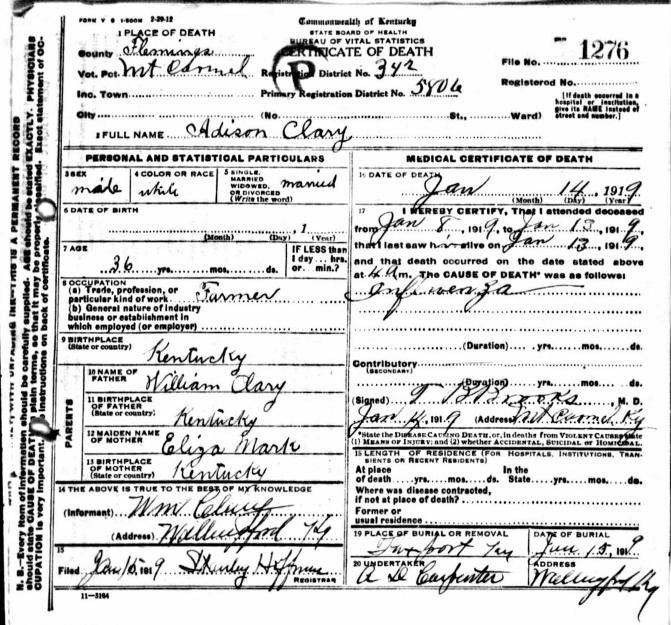 FORM V S 1-500M 2-29-12
Commonwealth of Kentucky
STATE BOARD OF HEALTH
BUREAU OF VITAL STATISTICS
CERTIFICATE OF DEATH
1 PLACE OF DEATH
County Flemings
Vot. Pct. Mt Carmel Registration District No. 342
Inc. Town Primary Registration District No. 5806
File No. 1276
Registered No.
[If death occurred in a
hospital or institution,
give its NAME instead of
street and number.]
City (No. St., Ward)
2 FULL NAME Adison Clary
PERSONAL AND STATISTICAL PARTICULARS
3 SEX
male
4 COLOR OR RACE
white
5 SINGLE,
MARRIED
WIDOWED,
OR DIVORCED
(Write the word)
married
6 DATE OF BIRTH
, 1
(Month) (Day) (Year)
7 AGE
36 yrs. mos. ds.
IF LESS than
1 day... hrs.
or... min.?
8 OCCUPATION
(a) Trade, profession, or
particular kind of work Farmer
(b) General nature of industry
business or establishment in
which employed (or employer)
9 BIRTHPLACE
(State or country)
Kentucky
PARENTS
10 NAME OF
FATHER
William Clary
11 BIRTHPLACE
OF FATHER
(State or country)
Kentucky
12 MAIDEN NAME
OF MOTHER
Eliza Mark
13 BIRTHPLACE
OF MOTHER
(State or country)
Kentucky
14 THE ABOVE IS TRUE TO THE BEST OF MY KNOWLEDGE
(Informant) Wm Clary
(Address) Wallingford Ky
15
Filed Jan 15 1919 Shirley
REGISTRAR
11-3164
MEDICAL CERTIFICATE OF DEATH
16 DATE OF DEATH
Jan 14, 1919
(Month) (Day) (Year)
17 I HEREBY CERTIFY, That I attended deceased
from Jan 8, 1919, to Jan 13, 1919,
that I last saw h alive on Jan 13, 1919,
and that death occurred on the date stated above
at 4 a m. The CAUSE OF DEATH* was as follows:
Influenza
(Duration) yrs. mos. ds.
Contributory
(SECONDARY)
(Duration) yrs. mos. ds.
(Signed) T B Brooks, M. D.
Jan 14, 1919 (Address) Mt Carmel Ky
*State the DISEASE CAUSING DEATH, or, in deaths from VIOLENT CAUSES, state
(1) MEANS OF INJURY; and (2) whether ACCIDENTAL, SUICIDAL or HOMICIDAL.
18 LENGTH OF RESIDENCE (FOR HOSPITALS, INSTITUTIONS, TRANSIENTS OR RECENT RESIDENTS)
At place In the
of death yrs. mos. ds. State yrs. mos. ds.
Where was disease contracted,
if not at place of death?
Former or
usual residence
19 PLACE OF BURIAL OR REMOVAL
Ky
DATE OF BURIAL
Jan 15, 1919
20 UNDERTAKER
A D Carpenter
ADDRESS
Wallingford Ky
N. B.—Every item of information should be carefully supplied. AGE should be stated EXACTLY. PHYSICIANS
should state CAUSE OF DEATH in plain terms, so that it may be properly classified. Exact statement of OC-
CUPATION is very important. instructions on back of certificate.
THIS IS A PERMANENT RECORD
P